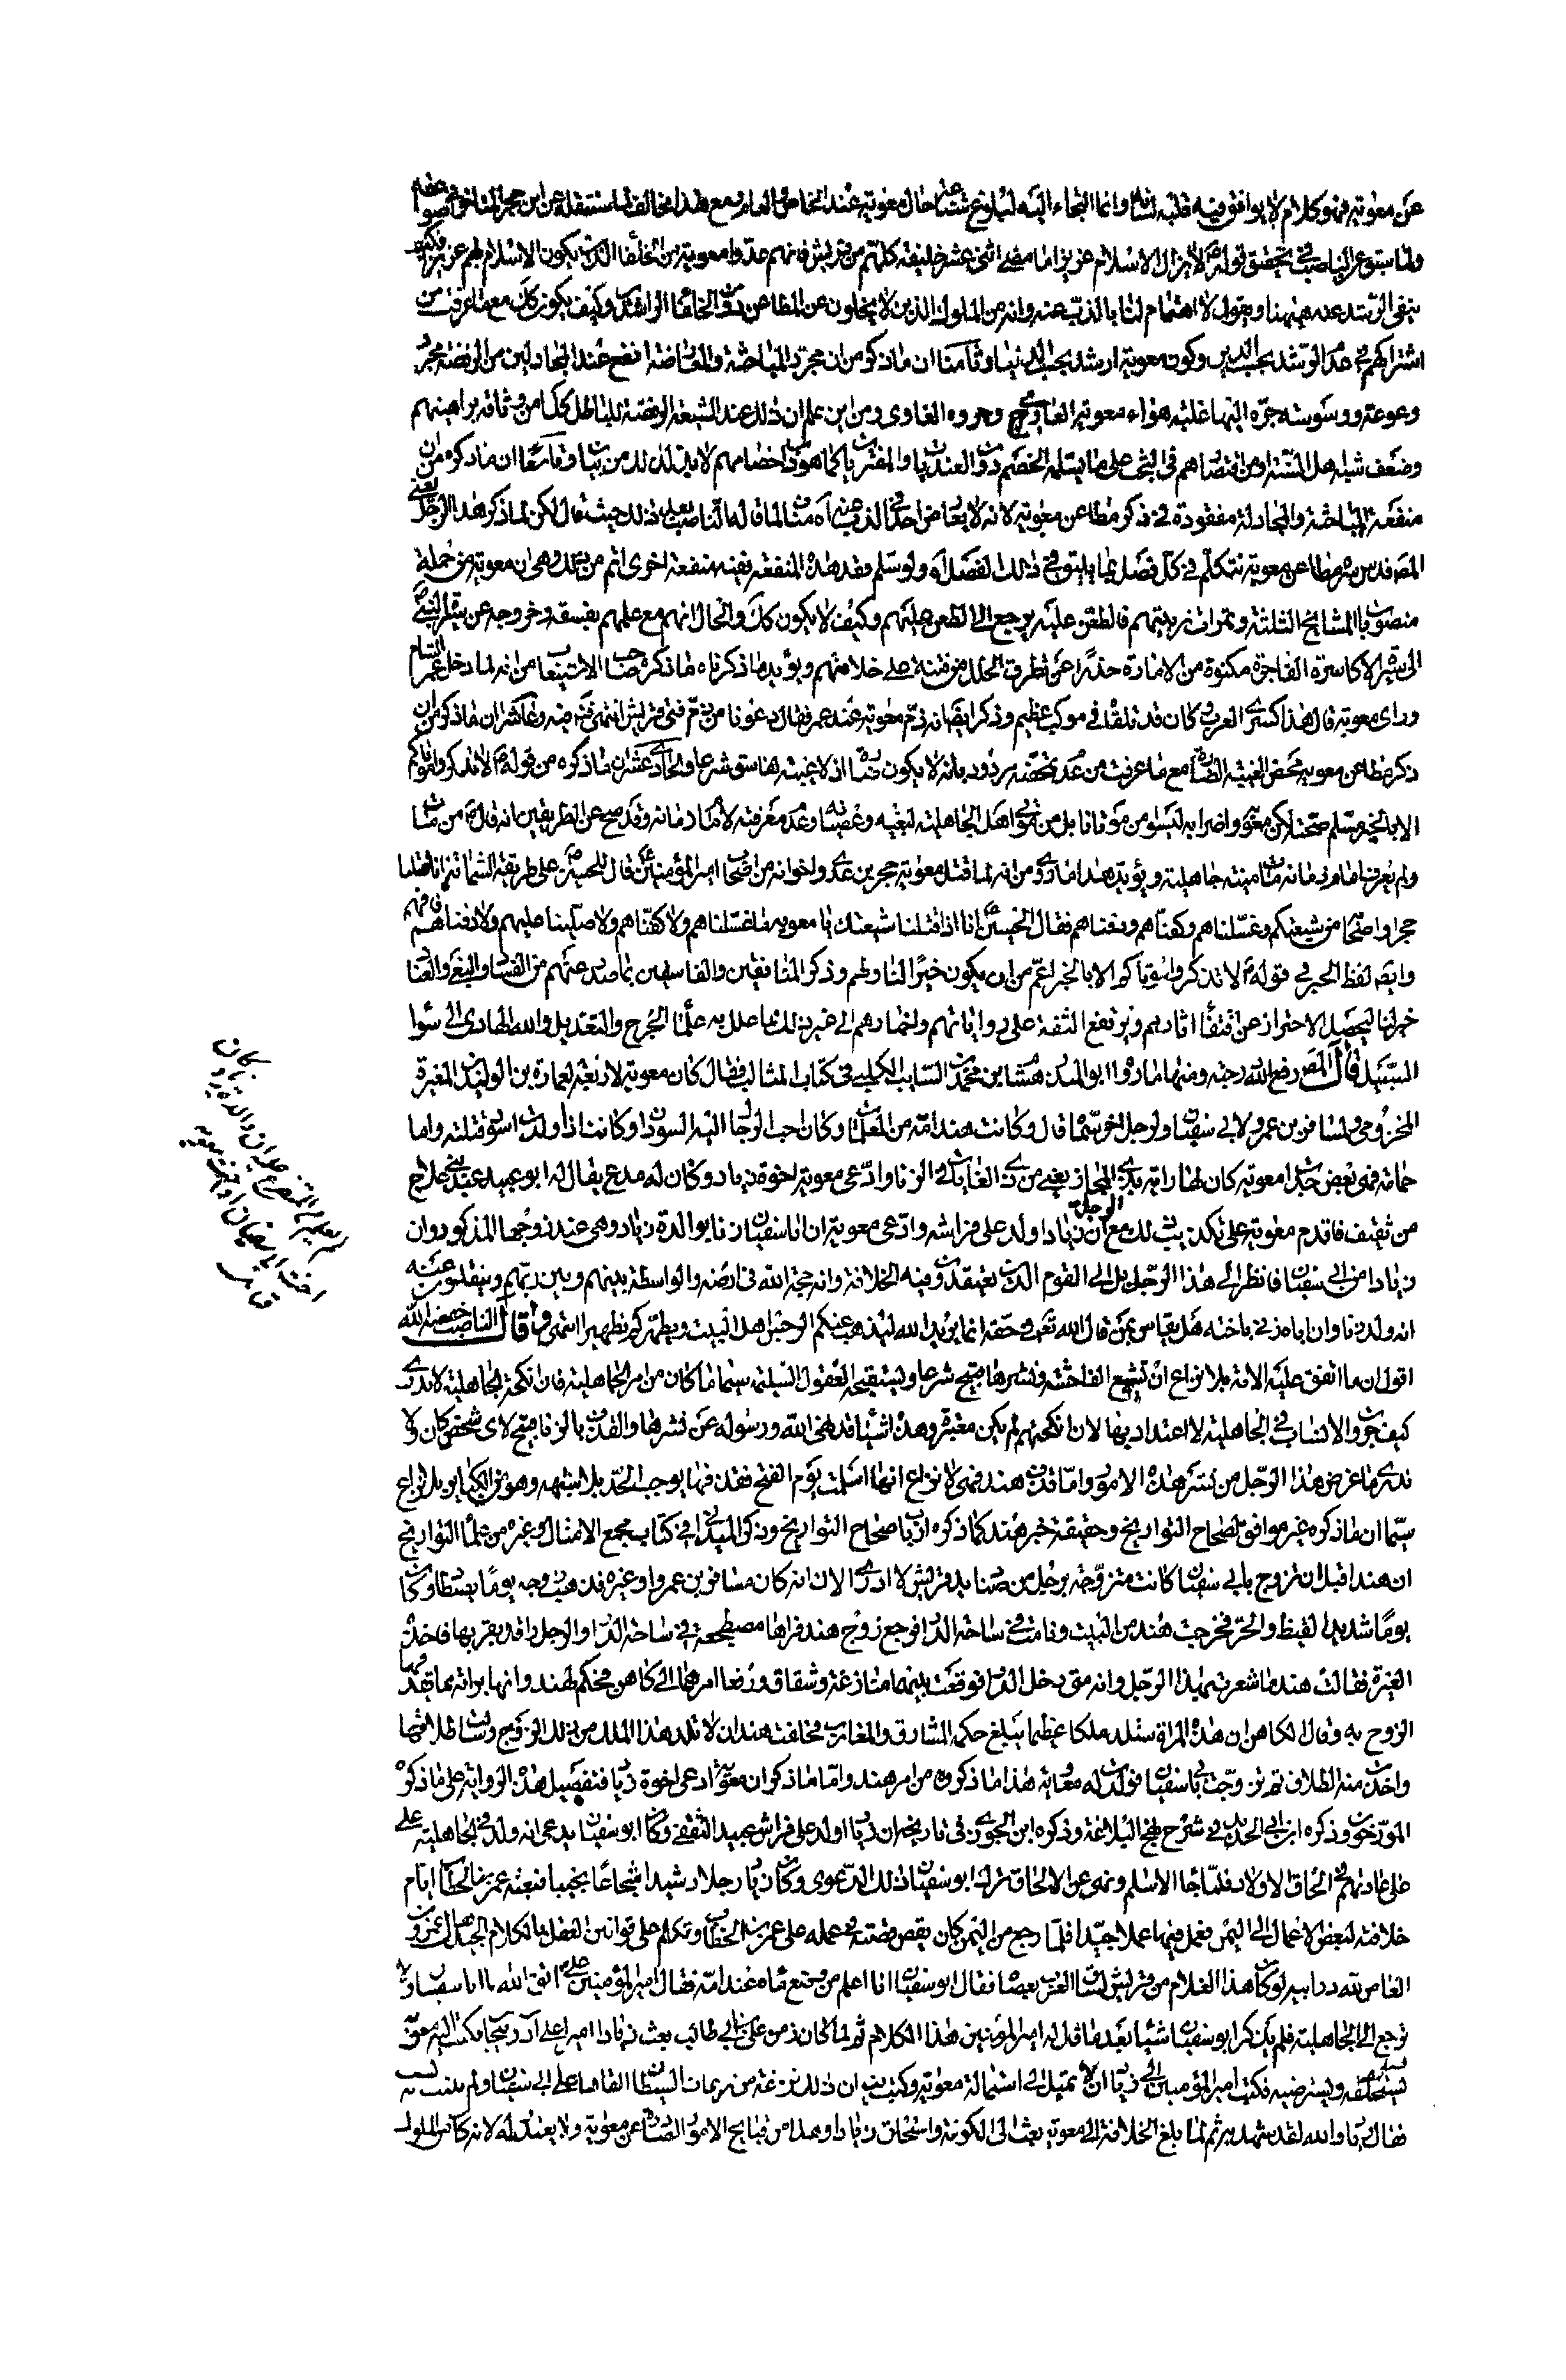 عن معوية فهو كلام لا يوافق فيه قلبه لسانه وانما التجاء اليه لبلوغ شناعة حال معوية عند الخاص والعام ومع هذا مخالف لما سننقله عن ابن حجر المتاخر في صواعقه
ينفى الرشد عنه ههنا ويقول لا اهتمام لنا بالذب عنه وانه من الملوك الذين لا يخلون عن المطاعن دون الخلفا الراشدين وكيف يكون كك مع ما عرفت من
اشتراكهم في عدم الرشد بحسب الدين وكون معوية ارشد بحسب الدنيا وثامنا ان ما ذكره من ان مجرد المباحثة والمعارضة انفع عند المجادلين من الرفضة مجرد
وضعف شبه اهل السنة ومن اقتصارهم في البحث على ما يسلمه الخصم دون العنديات والمفتريات كما هو داب اخصامهم لا بد لذلك من بيان وتاسعا ان ما ذكره من ان
منفعة المباحثة والمجادلة مفقودة في ذكر مطاعن معوية لانه لا يعارض احد في الذب عنه اه مناف لما قاله الناصب بعيد ذلك حيث قال لكن لما ذكر هذا الرجل يعنى
المصنف قدس سره مطاعن معوية نتكلم في كل فصل بما يليق في ذلك الفصل اه ولو سلم فقد هذه المنفعة ففيه منفعة اخرى اتم من تلك وهى ان معوية من جملة
منصوبات المشايخ الثلثة وثمرات تربيتهم فالطعن عليه يرجع الى الطعن عليهم وكيف لا يكون كك والحال انهم مع علمهم بفسقه وخروجه عن سيرة النبي
الى سيرة الاكاسرة الفاجرة مكنوه من الامارة حذرا عن تطرق الخلل من فتنته على خلافتهم ويؤيد ما ذكرناه ما ذكره صاحب الاستيعاب من انه لما دخل عمر الشام
وراى معوية قال هذا كسرى العرب وكان قد تلقاه في موكب عظيم وذكر ايضا انه ذم معوية عند عمر فقال دعونا من ذم فتى قريش انتهى فتدبر فيه وعاشرا ان ما ذكره من ان
ذكر مطاعن معوية محض الغيبة الضارة مع ما عرفت من عدم تحققه مردود بانه لا يكون ضارا اذ لا غيبة لفاسق شرعا والحادى عشر ان ما ذكره من قوله ص لا تذكروا موتاكم
الا بالخير مسلم صحته لكن معوية واضرابه ليسوا من موتانا بل من موتى اهل الجاهلية لبغيه وعصيانه وعدم معرفته لامام زمانه وقد صح عن الطريقين انه قال ص من مات
ولم يعرف امام زمانه مات ميتة جاهلية ويؤيد هذا ما روى من انه لما قتل معوية حجر بن عدى واخوانه من اصحاب امير المؤمنين ع قال للحسين ع على طريقة الشماتة انا قتلنا
حجرا واصحابه من شيعتكم وغسلناهم وكفناهم ودفناهم فقال الحسين ع انا اذا قتلنا شيعتك يا معوية ما غسلناهم ولا كفناهم ولا صلينا عليهم ولا دفناهم فافهم
وايضا لفظ الخير في قوله ص لا تذكروا موتاكم الا بالخير اعم من ان يكون خيرا لنا ولهم وذكر المنافقين والفاسقين بما صدر عنهم من الفسق والبغى والعناد
خير لنا ليحصل الاحتراز عن اقتفاء اثارهم ويرتفع الثقة على رواياتهم واخبارهم الى غير ذلك مما علل به علماء الجرح والتعديل والله الهادى الى سواء
السبيل قال المص رفع الله درجته ومنها ما رواه ابو المنذر هشام بن محمد بن السايب الكلبي في كتاب المثالب فقال كان معوية لاربعة لعمارة بن الوليد بن المغيرة
المخزومى ولمسافر بن عمرو ولابي سفيان ولرجل اخر سماه قال وكانت هند امه من المغلمات وكان احب الرجال اليه السودان وكانت اذا ولدت اسود قتلته واما
حمامة فهى بعض جدات معوية كان لها راية بذى المجاز يعنى من ذوى الغايات في الزنا وادعى معوية اخوة زياد وكان له مدع يقال له ابو عبيد عبد بنى علاج
من ثقيف فاقدم معوية على تكذيب ذلك الرجل مع ان زيادا ولد على فراشه وادعى معوية ان ابا سفيان زنا بوالدة زياد وهى عند زوجها المذكور وان
زيادا من ابى سفيان فانظر الى هذا الرجل بل الى القوم الذين يعتقدون فيه الخلافة وانه حجة الله في ارضه والواسطة بينهم وبين ربهم وينقلون عنه
انه ولد زنا وان اباه زنى باخته هل يقاس بمن قال الله تعالى في حقه انما يريد الله ليذهب عنكم الرجس اهل البيت ويطهركم تطهيرا انتهى وقال الناصب خفضه الله
اقول ان ما اتفق عليه الائمة بلا نزاع ان تشييع الفاحشة ونشرها قبيح شرعا وتستقبحه العقول السليمة سيما ما كان من امر الجاهلية فان انكحة الجاهلية لا ندرى
كيف جرت والانساب في الجاهلية لا اعتداد بها لان انكحتهم لم يكن معتبرة وهذه اشياء قد نهى الله ورسوله عن نشرها والقذف بالزنا قبيح لاى شخص كان ولا
ندرى ما غرض هذا الرجل من نشر هذه الامور واما قذف هند فهى لا نزاع انها اسلمت يوم الفتح فقذفها يوجب الحد بلا شبهه وهو من الكباير بلا نزاع
سيما ان ما ذكره غير موافق لصحاح التواريخ وحقيقة خبر هند كما ذكره ارباب صحاح التواريخ وذكر الميدانى في كتاب مجمع الامثال وغيره من علماء التواريخ
ان هندا قبل ان تزوج بابى سفيان كانت متزوجة برجل من صناديد قريش لا ادرى الان انه كان مسافر بن عمرو او غيره
يوما شديد القيظ والحر فخرجت هند من البيت ونامت في ساحة الدار فرجع زوج هند فراها مضطجعة في ساحة الدار والرجل راقد بقربها فاخذته
الغيرة فقالت هند ما شعرت بهذا الرجل وانه متى دخل الدار فوقعت بينهما منازعة وشقاق ورفعا امرهما الى كاهن فحكم لهند وانها برائة مما يقذفها
الزوج به وقال الكاهن ان هذه المراة ستلد ملكا عظيما يبلغ حكمه المشارق والمغارب فخافت هند ان لا تلد هذا الملك من ذلك الزوج وسالت طلاقها
واخذت منه الطلاق ثم تزوجت بابى سفيان فولدت له معوية هذا ما ذكروه من امر هند واما ما ذكر ان معوية ادعى اخوة زياد فتفصيل هذه الرواية على ما ذكره
المورخون وذكره ابن ابى الحديد في شرح نهج البلاغة وذكره ابن الجوزى في تاريخه ان زيادا ولد على فراش عبيد الثقفي وكان ابو سفيان يدعى انه ولد في الجاهلية على
على عادتهم في الحاق الاولاد فلما جاء الاسلام ونهى عن الالحاق ترك ابو سفيان ذلك الدعوى وكان زياد رجلا رشيدا شجاعا نجيبا فبعثه عمر بن الخطاب ايام
خلافته لبعض الاعمال الى اليمن فعمل فيها عملا جيدا فلما رجع من اليمن كان يقص قصته في عمله على عمر بن الخطاب وتكلم على قوانين الفضل بالكلام الجيد فقال عمرو بن
العاص لله در ابيه لو كان هذا الغلام من قريش لساق العرب بعصاه فقال ابو سفيان انا اعلم من وضع ماءه عند امه فقال امير المؤمنين على ع اتق الله يا ابا سفيان ولا
نرجع الى الجاهلية فلم يذكر ابو سفيان شيئا بعد ما قال له امير المؤمنين هذا الكلام ثم لما كان زمن على بن ابى طالب بعث زيادا اميرا على اذربيجان فكتب اليه معوية
فقال زياد والله لقد شهد به ثم لما بلغ الخلافة الى معوية بعث الى الكوفة واستلحق زيادا وهذا من قبايح الامور الصادرة عن معوية ولا يعتذر له لانه كان من الملوك